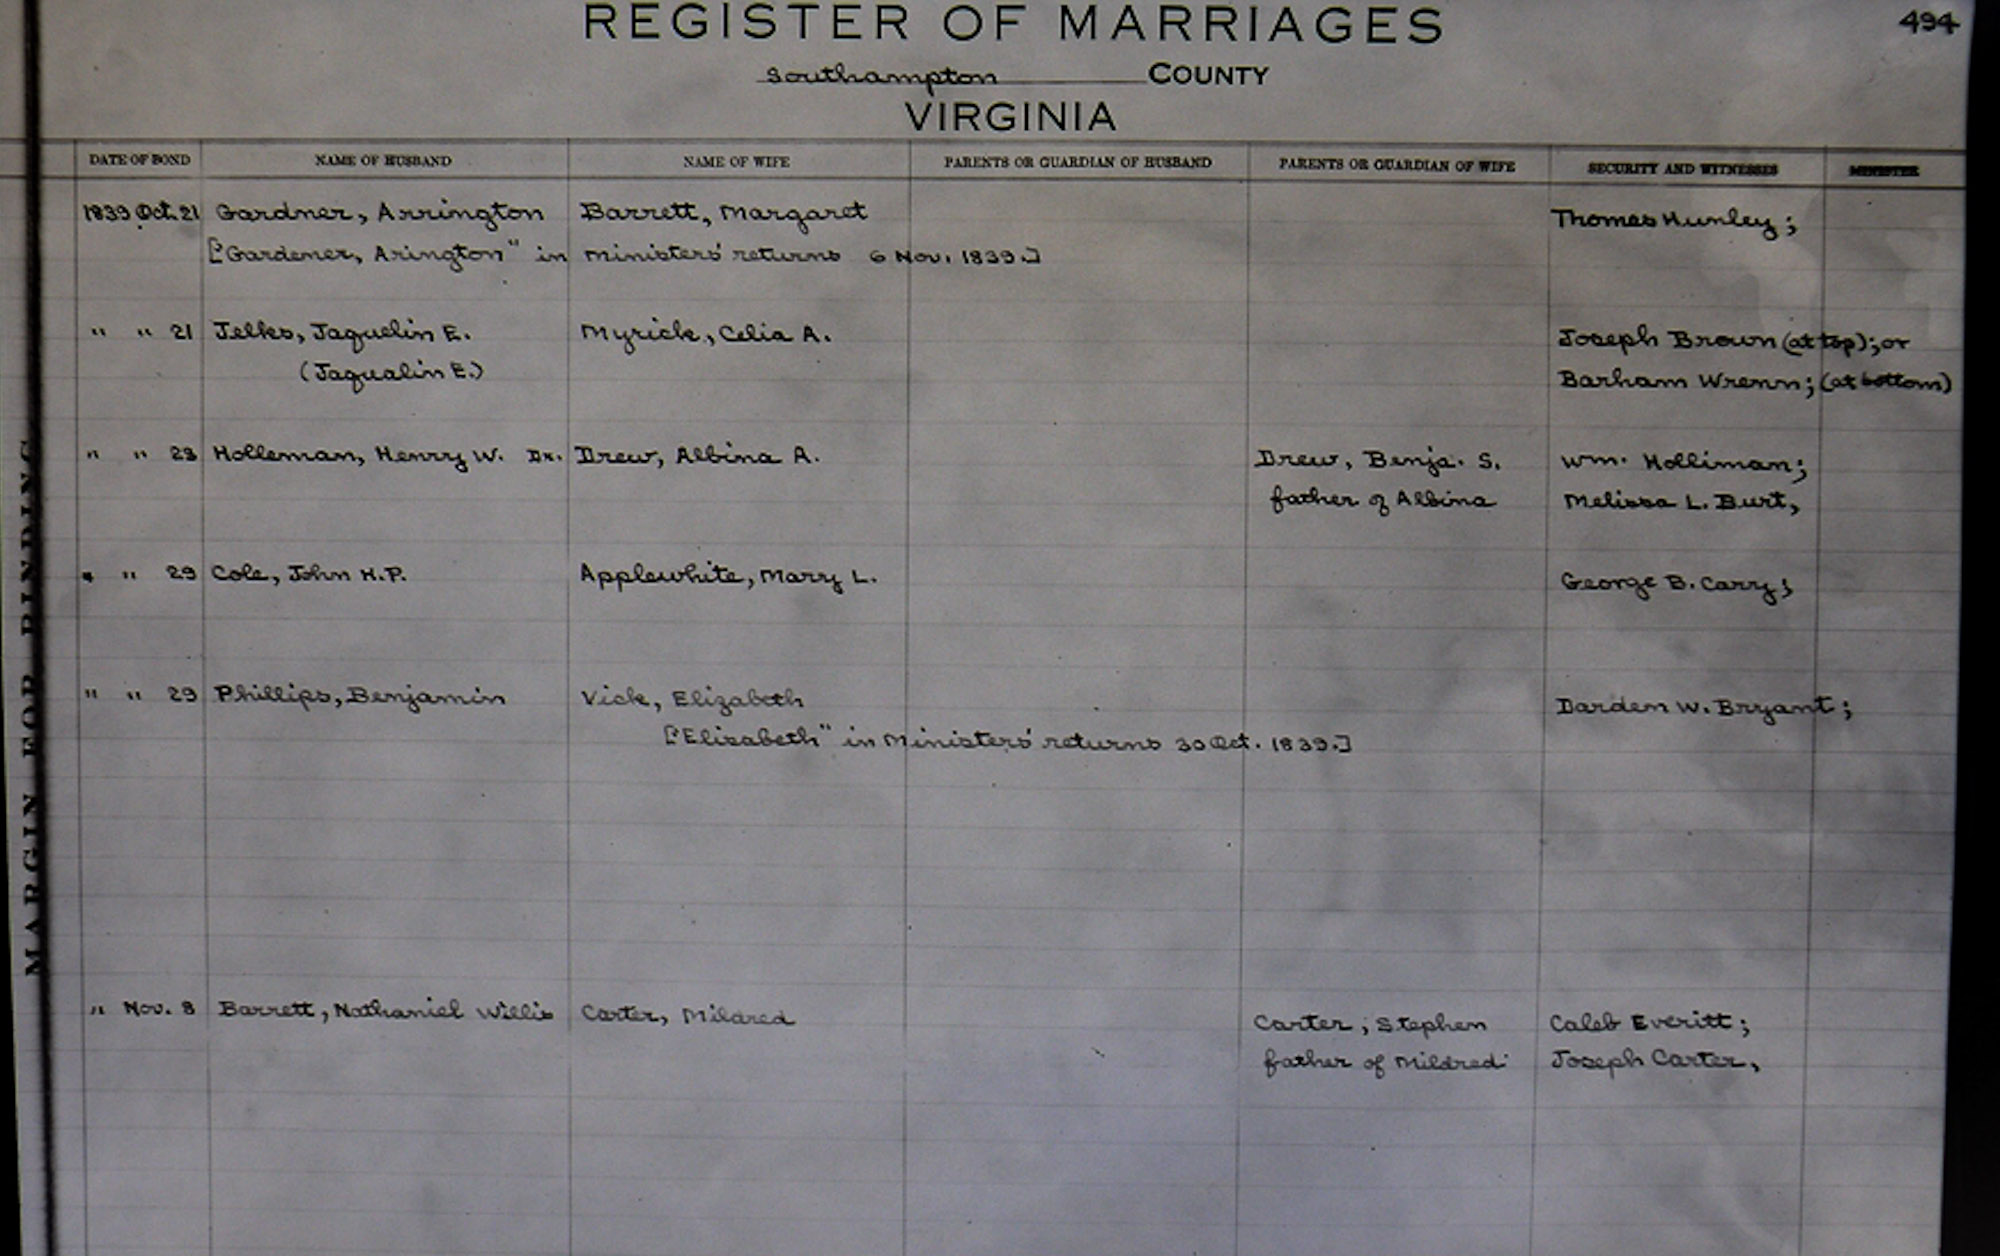 REGISTER OF MARRIAGES
494
Southampton COUNTY
VIRGINIA
MARGIN FOR BINDING
DATE OF BOND NAME OF HUSBAND NAME OF WIFE PARENTS OR GUARDIAN OF HUSBAND PARENTS OR GUARDIAN OF WIFE SECURITY AND WITNESSES MINISTER
1839 Oct. 21 Gardner, Arrington Barrett, Margaret Thomas Hunley;
["Gardener, Arington" in ministers' returns 6 Nov. 1839.]
" " 21 Jelks, Jaquelin E. Myrick, Celia A. Joseph Brown (at top); or
(Jaqualin E.) Barham Wrenn; (at bottom)
" " 23 Holleman, Henry W. Dr. Drew, Albina A. Drew, Benja. S. Wm. Holliman;
father of Albina Melissa L. Burt,
" " 29 Cole, John H.P. Applewhite, Mary L. George B. Cary;
" " 29 Phillips, Benjamin Vick, Elizabeth Darden W. Bryant;
["Elisabeth" in Ministers' returns 30 Oct. 1839.]
" Nov. 8 Barrett, Nathaniel Willis Carter, Mildred Carter, Stephen Caleb Everitt;
father of Mildred Joseph Carter,